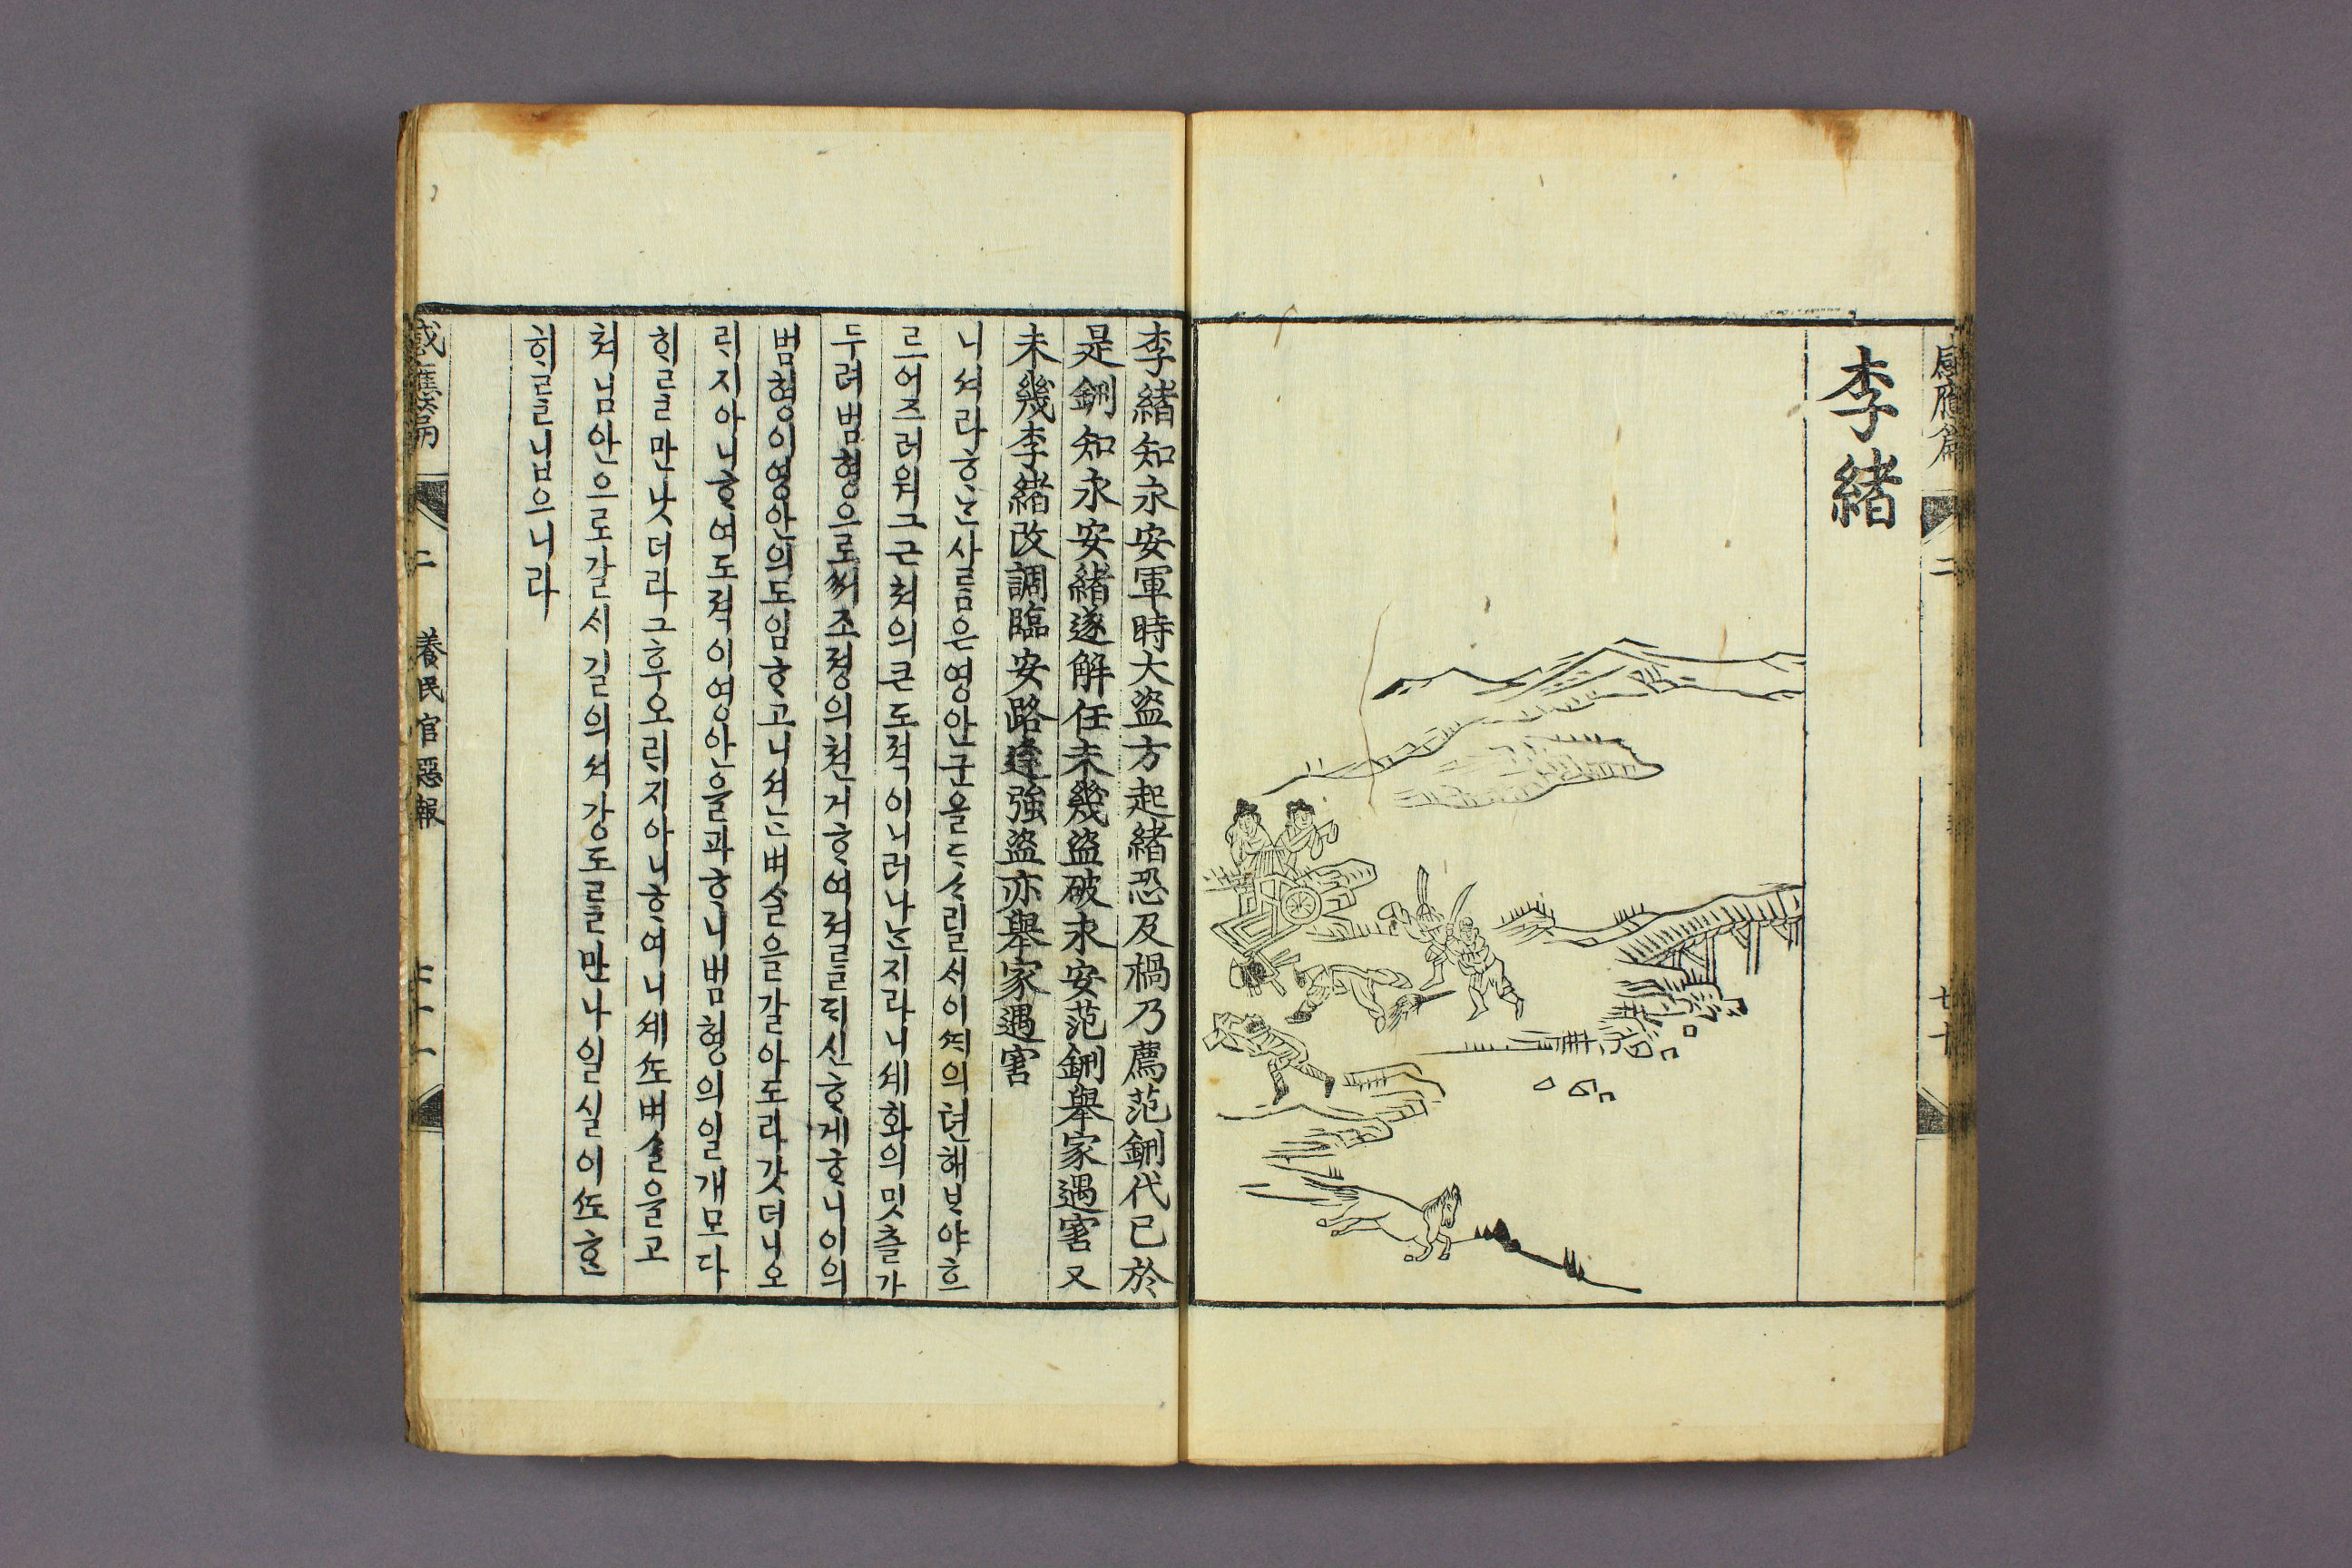 感應篇 二 七十
李緖
李緖知永安軍時大盜方起緖恐及禍乃薦范鉶代已於
是鉶知永安緖遂解任未幾盜破永安范鉶舉家遇害又
未幾李緖改調臨安路逢強盜亦舉家遇害
니셔라ᄒᆞᆫ사ᄅᆞᆷ은영안군을ᄃᆞᄉᆞ릴서이ᄯᆡ의텬해ᄇᆞ야흐
르어즈러워그근쳐의큰도적이니러나ᄂᆞᆫ지라니셰화의밋츨가
두려범형으로ᄡᅥ조졍의쳔거ᄒᆞ여져를ᄃᆡ신ᄒᆞ게ᄒᆞ니이의
범형이영안의도임ᄒᆞ고니셔ᄂᆞᆫ벼슬을갈아도라갓더니오
ᄅᆡ지아니ᄒᆞ여도적이영안을파ᄒᆞ니범형의일개모다
ᄒᆡᄅᆞᆯ만낫더라그후오ᄅᆡ지아니ᄒᆞ여니셰ᄯᅩ벼슬을고
쳐님안으로갈시길의셔강도ᄅᆞᆯ만나일실이ᄯᅩᄒᆞᆫ
ᄒᆡᄅᆞᆯ닙으니라
感應篇 二 養民官惡報 七十一